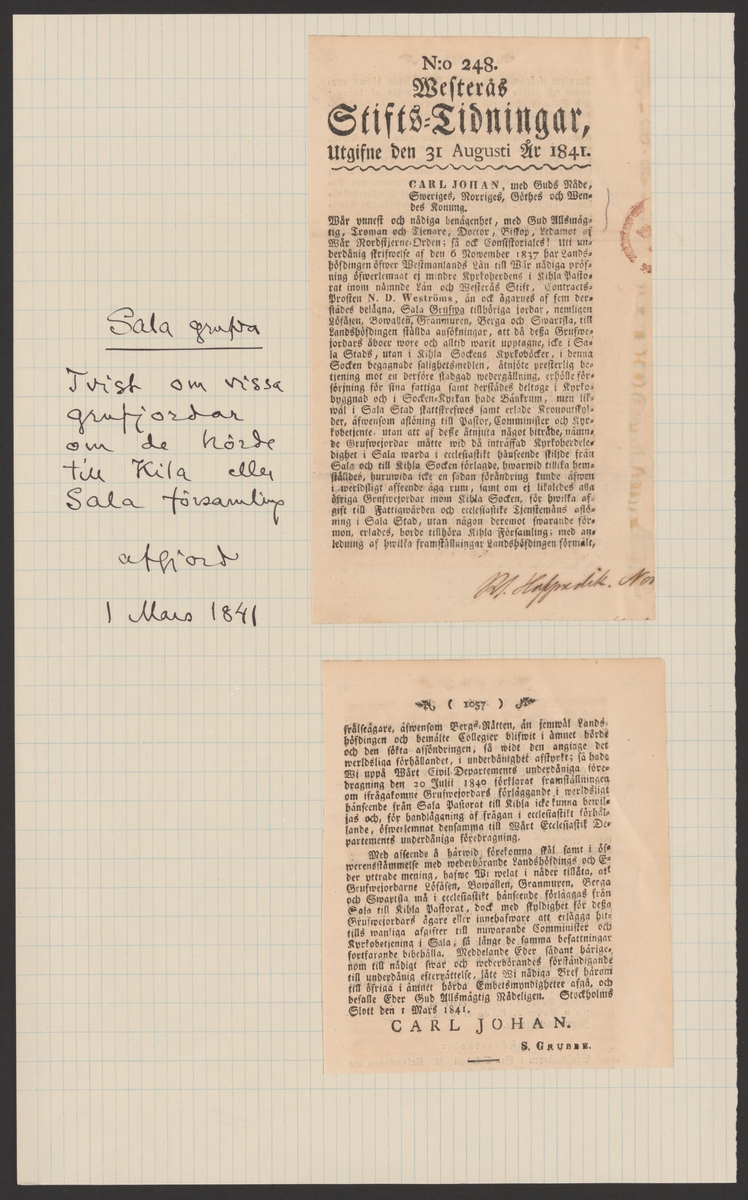 Sala grufva
Tvist om vissa
grufjordar
om de hörde
till Kila eller
Sala församling
afgjord
1 Mars 1841
N:o 248.
Westerås
Stifts-Tidningar,
Utgifne den 31 Augusti År 1841.
CARL JOHAN, med Guds Nåde,
Sweriges, Norriges, Göthes och Wen-
des Konung.
Wår ynnest och nådiga benägenhet, med Gud Allsmäg-
tig, Troman och Tjenare, Doctor, Biskop, Ledamot af
Wår Nordstjerne-Orden; så ock Consistoriales! Uti un-
derdånig skrifwelse af den 6 November 1837 har Lands-
höfdingen öfwer Westmanlands Län till Wår nådiga pröf-
ning öfwerlemnat ej mindre Kyrkoherdens i Kihla Pasto-
rat inom nämnde Län och Westerås Stift, Contracts-
Prosten N. D. Weströms, än ock ägarnes af fem der-
städes belägna, Sala Grufwa tillhöriga jordar, nemligen
Löfåsen, Bowallen, Granmuren, Berga och Swartsta, till
Landshöfdingen ställda ansökningar, att då dessa Grufwe-
jordars åboer wore och alltid warit upptagne, icke i Sa-
la Stads, utan i Kihla Sockens Kyrkoböcker, i denna
Socken begagnade salighetsmedlen, åtnjöte presterlig be-
tjening mot en derföre stadgad wedergällning, erhölle för-
sörjning för sina fattiga samt derstädes deltoge i Kyrko-
byggnad och i Socken-Kyrkan hade Bänkrum, men lik-
wäl i Sala Stad skattskrefwes samt erlade Kronoutskyl-
der, äfwensom aflöning till Pastor, Comminister och Kyr-
kobetjente, utan att af desse åtnjuta något biträde, nämn-
de Grufwejordar måtte wid då inträffad Kyrkoherdele-
dighet i Sala warda i ecclesiastikt hänseende skiljde från
Sala och till Kihla Socken förlagde, hwarwid tillika hem-
ställdes, huruwida icke en sådan förändring kunde äfwen
i werldsligt afseende äga rum, samt om ej likaledes alla
öfriga Grufwejordar inom Kihla Socken, för hwilka af-
gift till Fattigwården och ecclesiastike Tjenstemäns aflö-
ning i Sala Stad, utan någon deremot swarande för-
mon, erlades, borde tillhöra Kihla Församling; med an-
ledning af hwilka framställningar Landshöfdingen förmält,
( 1057 )
frälseägare, äfwensom Bergs-Rätten, än jemwäl Lands-
höfdingen och bemälte Collegier blifwit i ämnet hörde
och den sökta afföndringen, så widt den anginge det
werldsliga förhållandet, i underdånighet afstyrkt; så hade
Wi uppå Wårt Civil-Departements underdåniga före-
dragning den 20 Julii 1840 förklarat framställningen
om ifrågakomne Grufwejordars förläggande i werldsligt
hänseende från Sala Pastorat till Kihla icke kunna bewil-
jas och, för handläggning af frågan i ecclesiastikt förhål-
lande, öfwerlemnat densamma till Wårt Ecclesiastik De-
partements underdåniga föredragning.
Med afseende å härwid förekomna skäl samt i öf-
werensstämmelse med wederbörande Landshöfdings och E-
der yttrade mening, hafwe Wi welat i nåder tillåta, att
Grufwejordarne Löfåsen, Bowallen, Granmuren, Berga
och Swartsta må i ecclesiastikt hänseende förläggas från
Sala till Kihla Pastorat, dock med skyldighet för dessa
Grufwejordars ägare eller innehafware att erlägga hit-
tills wanliga afgifter till nuwarande Comminister och
Kyrkobetjening i Sala, så länge de samma befattningar
fortfarande bibehålla. Meddelande Eder sådant härige-
nom till nådigt swar och wederbörandes förständigande
till underdånig efterrättelse, låte Wi nådiga Bref härom
till öfriga i ämnet hörda Embetsmyndigheter afgå, och
befalle Eder Gud Allsmägtig Nådeligen. Stockholms
Slott den 1 Mars 1841.
CARL JOHAN.
S. GRUBBE.